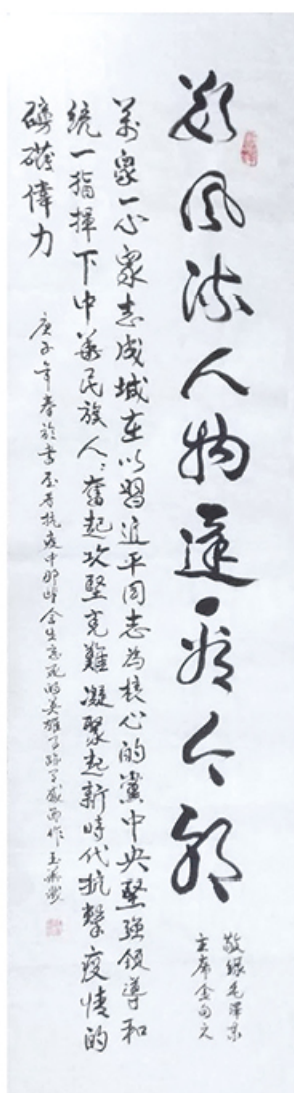 數風流人物還看今朝
敬録毛澤東
主席金句
萬衆一心衆志成城在以習近平同志為核心的黨中央堅強領導和
統一指揮下中華民族人々奮起攻堅克難凝聚起新時代抗擊疫情的
磅礴偉力
庚子年春於書屋為抗疫中那些舍生忘死的英雄感而作